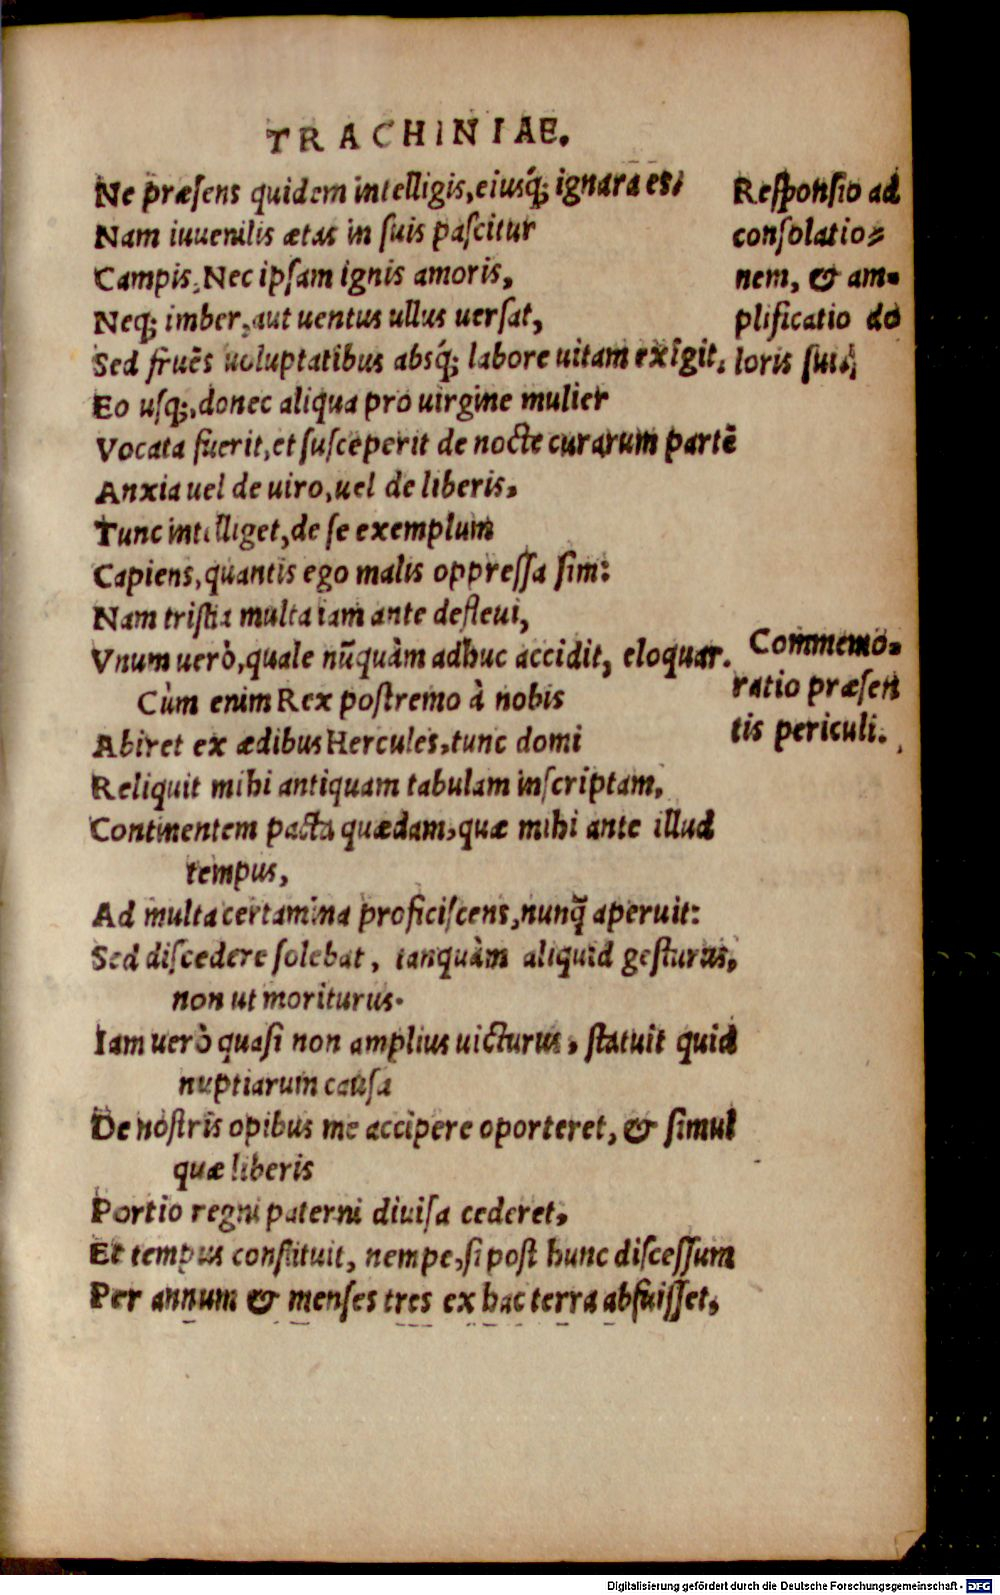 TRACHINIAE.
Ne præsens quidem intelligis, eiusq́; ignara es:
Nam iuuenilis ætas in suis pascitur
Campis, Nec ipsam ignis amoris,
Neq; imber, aut uentus ullus uersat,
Sed fruẽs uoluptatibus absq́; labore uitam exigit.
Eo usq;, donec aliqua pro uirgine mulier
Vocata fuerit, et susceperit de nocte curarum partẽ
Anxia uel de uiro, uel de liberis,
Tunc intelliget, de se exemplum
Capiens, quantis ego malis oppressa sim:
Nam tristia multa iam ante defleui,
Vnum uerò, quale nũquàm adhuc accidit, eloquar.
Cùm enim Rex postremo à nobis
Abiret ex ædibus Hercules, tunc domi
Reliquit mihi antiquam tabulam inscriptam,
Continentem pacta quædam, quæ mihi ante illud
tempus,
Ad multa certamina proficiscens, nunq̃ aperuit:
Sed discedere solebat, tanquàm aliquid gesturus,
non ut moriturus.
Iam uerò quasi non amplius uicturus, statuit quid
nuptiarum causa
De nostris opibus me accipere oporteret, & simul
quæ liberis
Portio regni paterni diuisa cederet,
Et tempus constituit, nempe, si post hunc discessum
Per annum & menses tres ex hac terra abfuisset,
Responsio ad
consolatio=
nem, & am-
plificatio do
loris sui.
Commemo-
ratio præsen
tis periculi.
Digitalisierung gefördert durch die Deutsche Forschungsgemeinschaft - DFG